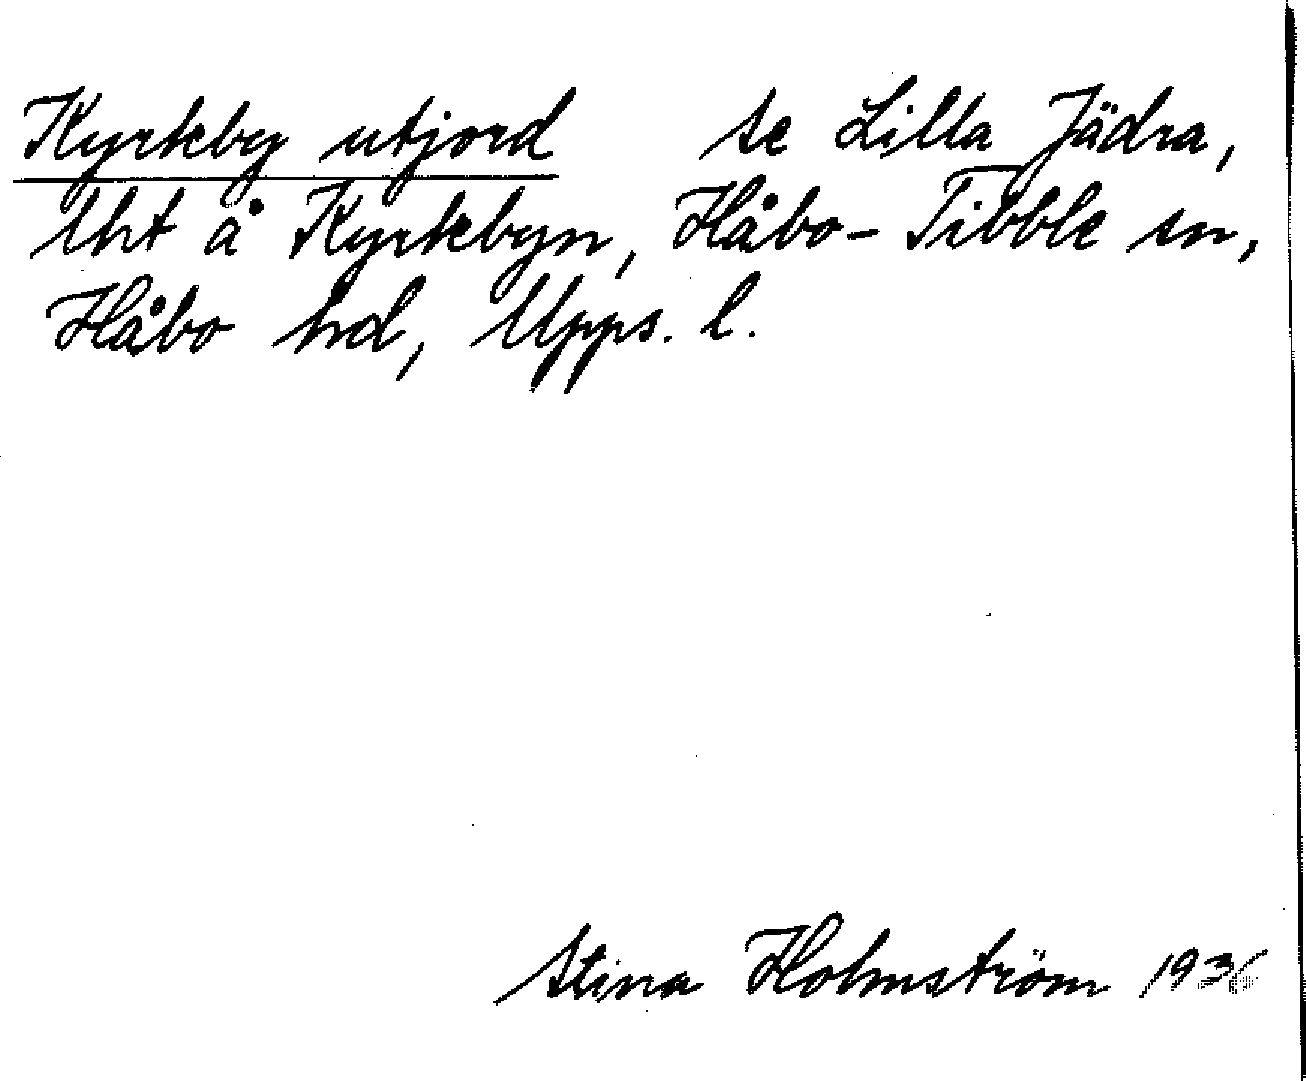 Kyrkeby utjord se Lilla Jädra,
Uht å Kyrkebyn, Håbo-Tibble sn,
Håbo hd, Upps. l.
Stina Holmström 1936